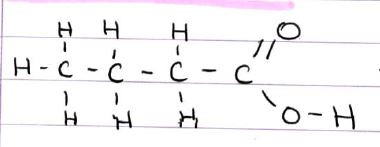 H H H O
H - C - C - C - C
H H H O - H